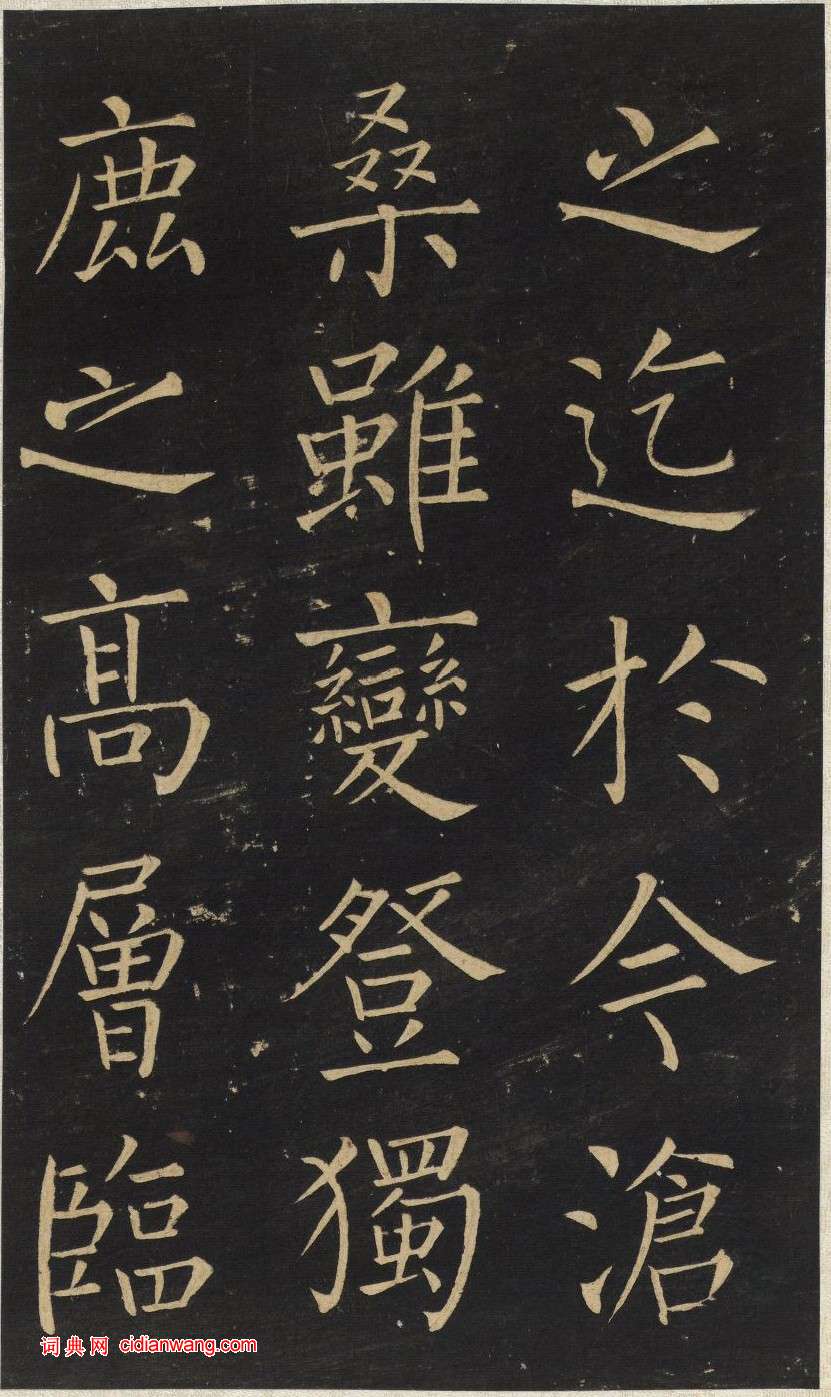 之迄於今滄
桑雖變登獨
鹿之髙層臨
词典网 cidianwang.com